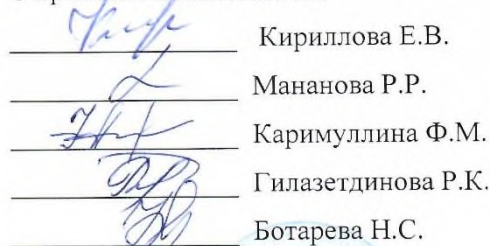 Кириллова Е.В.
Мананова Р.Р.
Каримуллина Ф.М.
Гилазетдинова Р.К.
Ботарева Н.С.